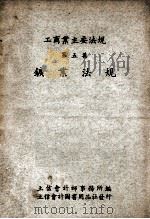 工商業主要法規
第五篇
鑛業法規
立信會計師事務所編
立信會計圖書用品社發行